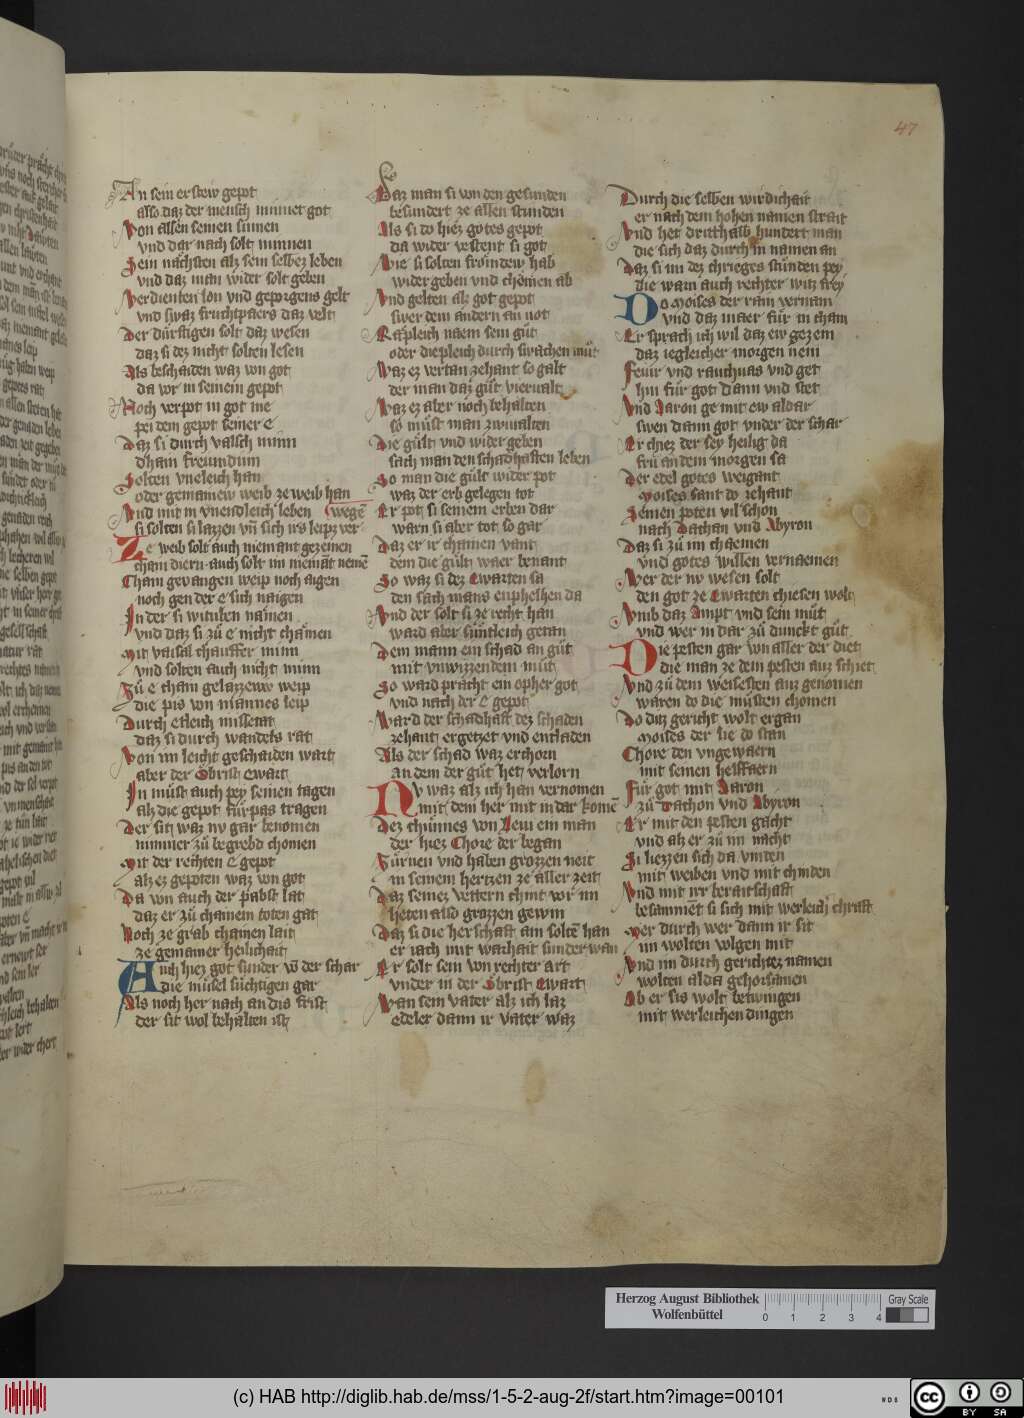 47
An sein erstew gepot
also daz der mensch minnet got
Von allen seinen sinnen
vnd dar nach solt minnen
Sein nächsten alz sein selbez leben
vnd daz man wider solt geben
Verdienten lon vnd geporgens gelt
vnd swaz fruchtpaers daz velt
Der dürftigen solt daz wesen
daz si dez nicht solten lesen
Als beschaiden waz von got
da vor in seinem gepot
Noch verpot in got me
pei dem gepot seiner E
Daz si durch valsch minn
dhain freundinn
Solten vneleich han
oder gemainew weib ze weib han
Vnd mit in vnendleich leben (wegē
si solten si lazzen vn̄ sich irs leipz ver
Ze weib solt auch niemant gezemen
chain diern auch solt im niemāt nemē
Chain gevangen weip noch aigen
noch gen der E sich naigen
In der si wituben namen
vnd daz si zů E nicht chämen
Mit vaisal chauffter minn
vnd solten auch nicht minn
Zů E chain gelazzew weip
die pis von mannes leip
Durch etleich missetat
daz si durch wandels rat
Von im leicht geschaiden wart
aber der Obrist Ewart
In můst auch pey seinen tagen
alz die gepot fürpas tragen
Der sit waz nv gar benomen
nimmer zů begrebd chomen
Mit der rechten E gepot
alz ez gepoten waz von got
Da von auch der pabst lat
daz er zů chainem toten gat
Noch ze grab chainen lait
ze gemainer heilichait
Auch hiez got sunder võ der schar
die müsel süchtigen gar
Als noch her nach an dis frist
der sit wol behalten ist
Daz man si von den gesunden
besundert ze allen stunden
Als si do hiez gotes gepot
da wider vestent si got
Wie si solten frömdew hab
wider geben vnd chemen ab
Vnd gelten alz got gepot
swer dem andern an not
Rapleich naem sein gůt
oder diepleich durch swachen můt
Waz ez vertan zehant so galt
der man daz gůt viervalt
Waz ez aber noch behalten
so můst man zwivalten
Die gült vnd wider geben
sach man den schadhaften leben
So man die gült wider pot
waz der erb gelegen tot
Er pot si seinem erben dar
warn si aber tot so gar
Daz er ir chainen vant
dem die gült waer benant
So waz si dez Ewarten sa
den sach mans enphelhen da
Vnd der solt si ze recht han
ward aber sümleich getan
Dem mann ein schad an gůt
mit vnwizzendem můt
So ward pracht ein opher got
vnd nach der E gepot
Ward der schadhaft dez schaden
zehant ergetzet vnd entladen
Als der schad waz erchorn
an dem der gůt het verlorn
Nv waz alz ich han vernomen
mit dem her mit in dar komē
Dez chünnes von Leui ein man
der hiez Chore der began
Zürnen vnd haben grozzen neit
in seinem hertzen ze aller zeit
Daz seinez vettern chint vor im
heten also grozzen gewin
Daz si die herschaft am soltē han
er iach mit warhait sunder wan
Er solt sein von rechter art
vnder in der Obrist Ewart
Wan sein vater alz ich laz
edeler dann ir vater waz
Durch die selben wirdichait
er nach dem hohen namen strait
Vnd het dritthalb hundert man
die sich daz durch in namen an
Daz si im dez chrieges stůnden pey
die warn auch rechter witz frey
Do Moises der raiu vernam
vnd daz maer für in cham
Er sprach ich wil daz ew gezem
daz iegleicher morgen nem
Feuir vnd rauchuas vnd get
hin für got dann vnd stet
Vnd Aaron ge mit ew aldar
swen dann got vnder der schar
Er chiez der sey heilig da
frü an dem morgen sa
Der edel gotes weigant
Moises sant do zehant
Seinen poten vil schon
nach Dathan vnd Abyron
Daz si zů im chaemen
vnd gotes willen vernaemen
Wer der nv wesen solt
den got ze Ewarten chiesen wolt
Vmb daz Ampt vnd sein můt
vnd wer in dar zů dunckt gůt
Die pesten gar von aller der diet
die man ze dem pesten auz schiet
Vnd zů dem weisesten auz genomen
waren do die můsten chomen
Do ditz gericht wolt ergan
Moises der lie do stan
Chore den vngewaern
mit seinen helffaern
Für got mit Aaron
zů Dathon vnd Abyron
Er mit den pesten gacht
vnd alz er zů im nacht
Si liezzen sich da vinden
mit weiben vnd mit chinden
Vnd mit irr beraitschaft
besammēt si sich mit werleich chraft
Wer durch wer dann ir sit
im wolten volgen mit
Vnd im durch gerichtez namen
wolten alda gehorsamen
Ob er sis wolt betwingen
mit werleichen dingen
Herzog August Bibliothek
Wolfenbüttel
0 1 2 3 4
Gray Scale
(c) HAB http://diglib.hab.de/mss/1-5-2-aug-2f/start.htm?image=00101
WDB
CC BY SA